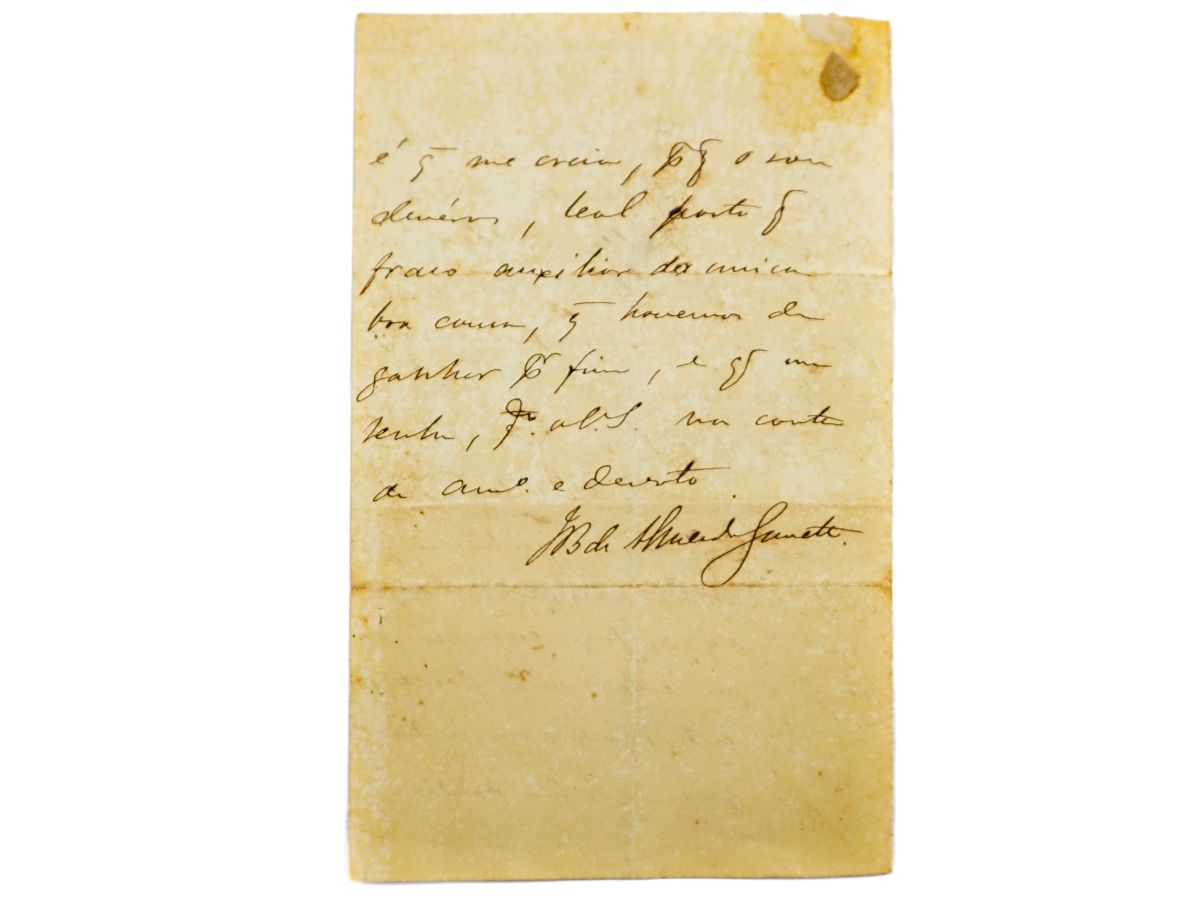 é q̃ me creia, pq̃ o sou
devéras, leal posto q̃
fraco auxiliar da unica
boa causa, q̃ havemos de
ganhar pr fim, e
tenha, a V. S. na conta
de amo. e devoto
JB de Almeida Garrett.